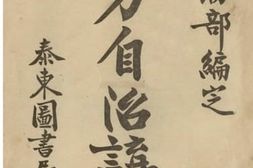 部編定
方自治講
泰東圖書局